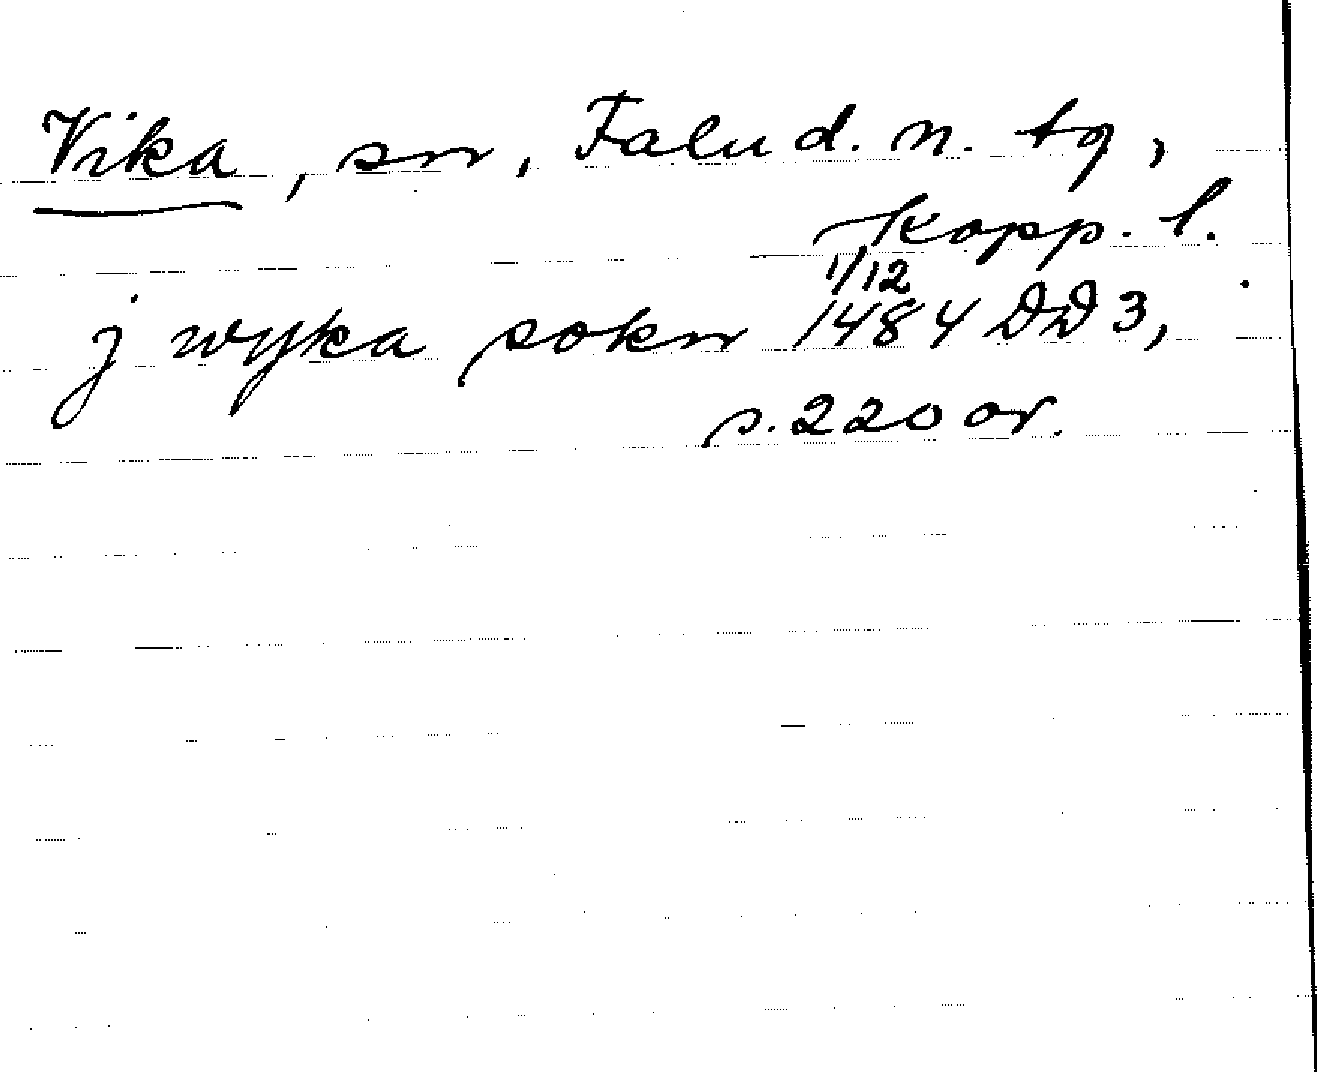 Vika, sn, Falu d. n. tg,
Kopp. l.
j wyka sokn 1/12 1484 DD 3,
s. 220 or.